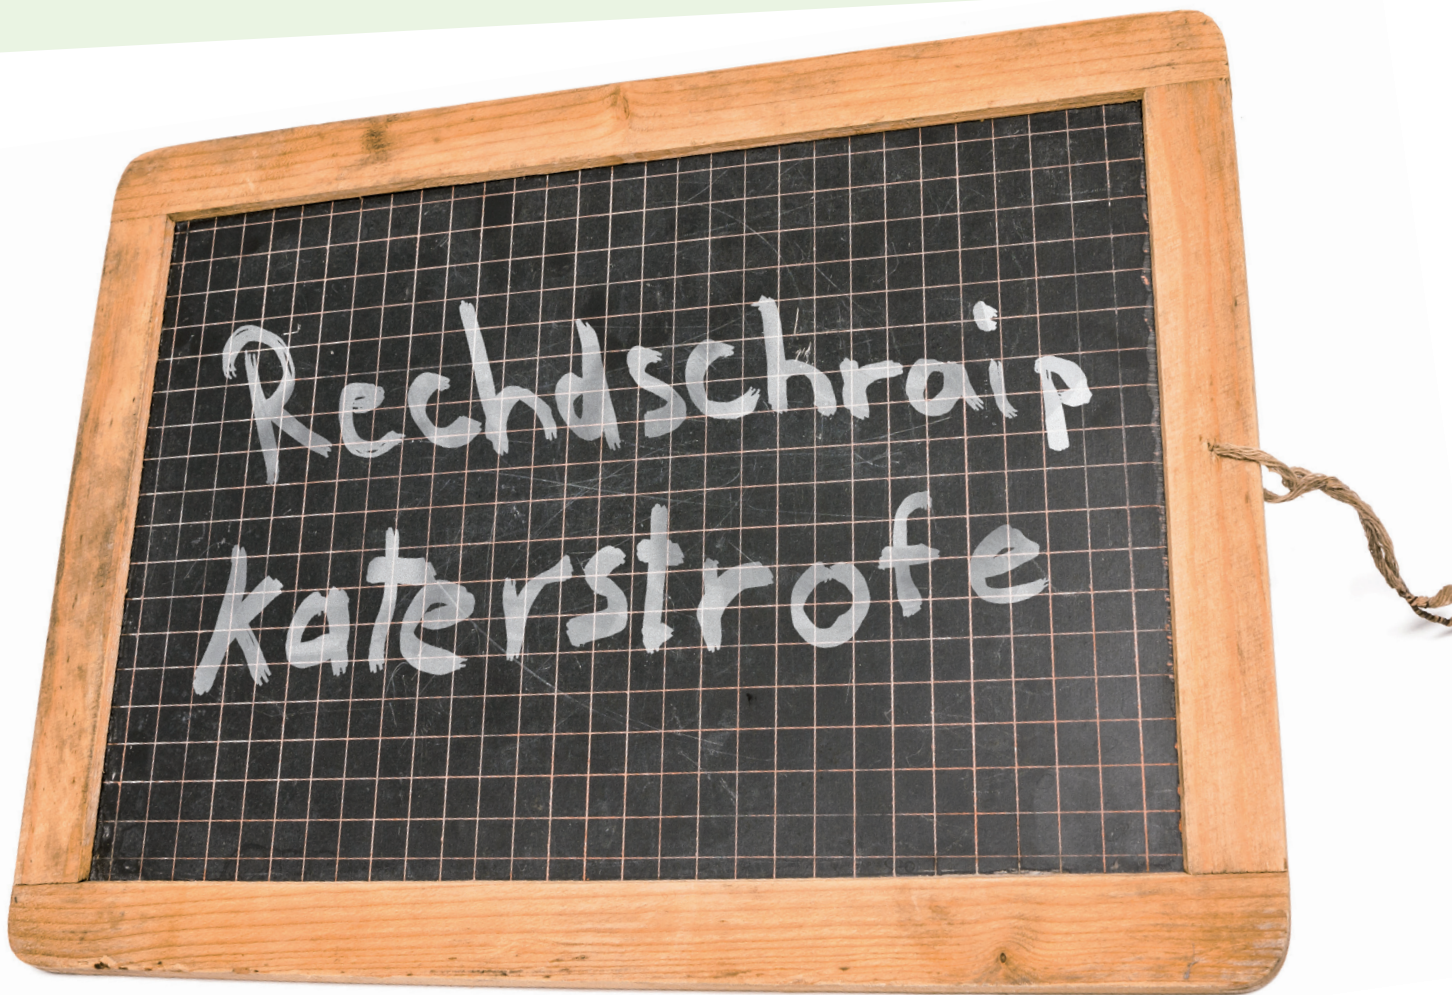 Rechdschraip
katerstrofe